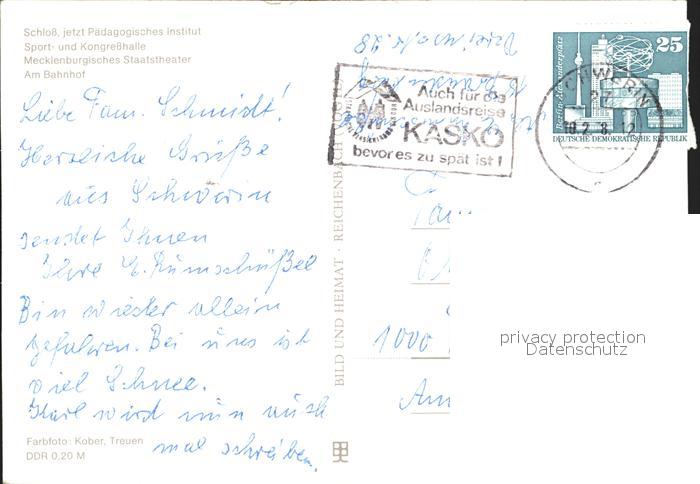 Schloß, jetzt Pädagogisches Institut
Sport- und Kongreßhalle
Mecklenburgisches Staatstheater
Am Bahnhof
Liebe Fam. Schmidt!
Herzliche Grüße
aus Schwerin
sendet Ihnen
Ihre E. Rumschüßel
Bin wieder allein
gefahren. Bei uns ist
viel Schnee.
Karl wird nun auch
mal schreiben.
Farbfoto: Kober, Treuen
DDR 0,20 M
BILD UND HEIMAT · REICHENBACH
Auch für das
Auslandsreise
KASKO
bevor es zu spät ist!
SCHWERIN
27
10.2.8
Berlin-Alexanderplatz
25
DEUTSCHE DEMOKRATISCHE REPUBLIK
1000
Am
privacy protection
Datenschutz